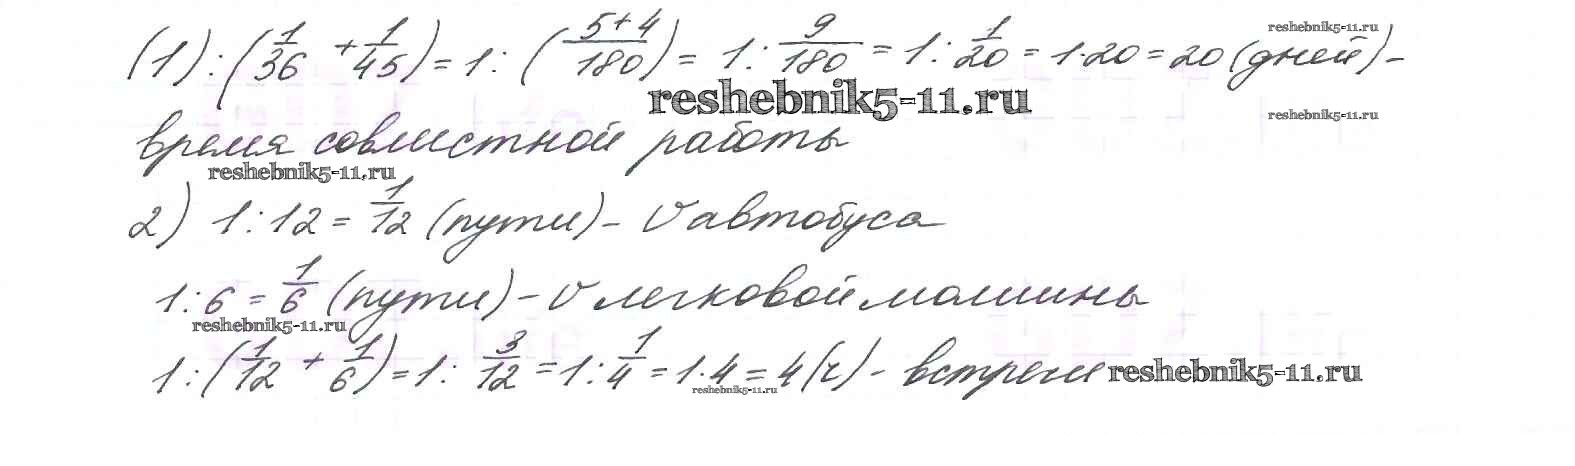 (1) : (1/36 + 1/45) = 1 : ((5+4)/180) = 1 : 9/180 = 1 : 1/20 = 1·20 = 20 (дней) –
reshebnik5-11.ru
reshebnik5-11.ru
reshebnik5-11.ru
время совместной работы
reshebnik5-11.ru
2) 1 : 12 = 1/12 (пути) – v автобуса
1 : 6 = 1/6 (пути) – v легковой машины
reshebnik5-11.ru
1 : (1/12 + 1/6) = 1 : 3/12 = 1 : 1/4 = 1·4 = 4 (ч) – встреча
reshebnik5-11.ru
reshebnik5-11.ru